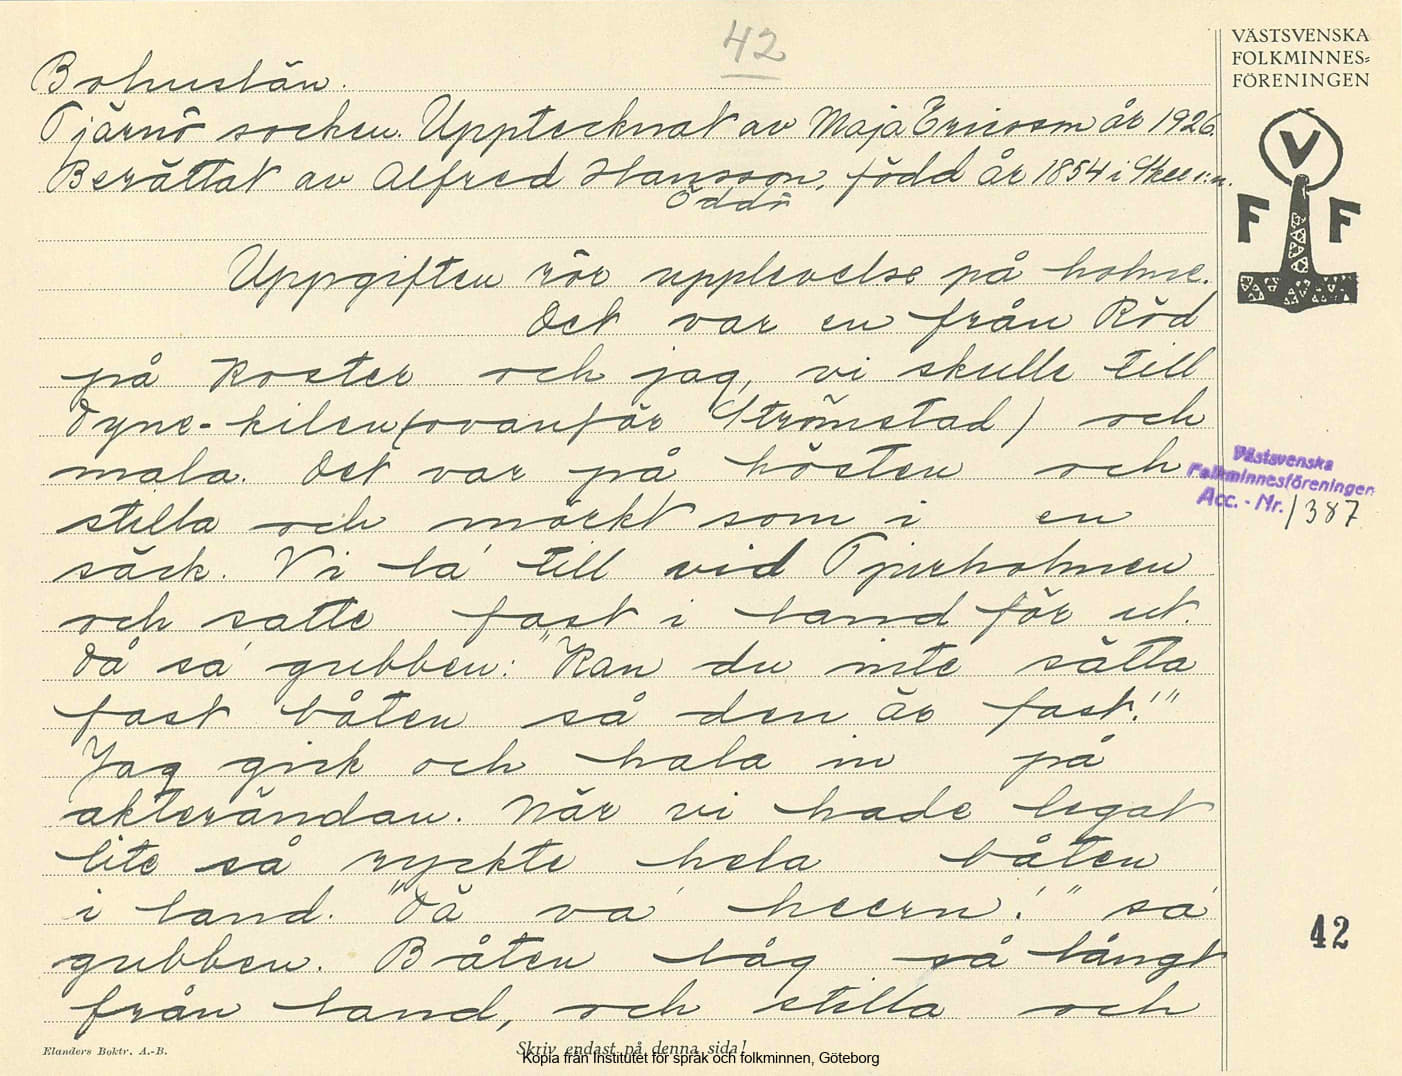 42
VÄSTSVENSKA
FOLKMINNES-
FÖRENINGEN
V
F F
Bohuslän.
Tjärnö socken. Upptecknat av Maja Ericson år 1926.
Berättat av Alfred Hansson, född år 1854 i Skee s:n.
Öddö
Uppgiften rör upplevelse på holme.
Det var en från Röd
på Koster och jag, vi skulle till
Dyne-kilen (ovanför Strömstad) och
mala. Det var på hösten och
stilla och mörkt som i en
säck. Vi lå till vid Tjurholmen
och satte fast i land för ut.
Då sá gubben: "Kan du inte sätta
fast båten så den är fast!"
Jag gick och hala in på
akterändan. När vi hade legat
lite så ryckte hela båten
i land. "Dä va heern!" sá
gubben. Båten låg så långt
från land, och stilla och
Västsvenska
Folkminnesföreningen
Acc. - Nr. 1387
42
Elanders Boktr. A.-B.
Skriv endast på denna sida!
Kopia från Institutet för språk och folkminnen, Göteborg